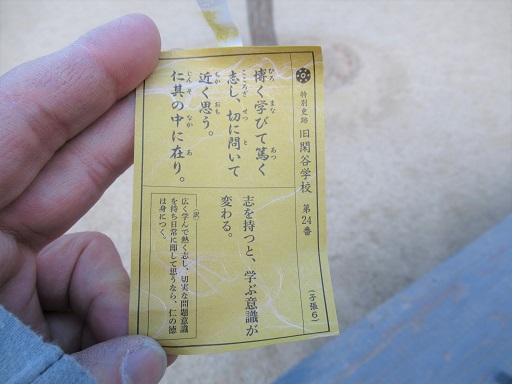 特別史跡 旧閑谷学校 第24番
(子張6)
博く学びて篤く
ひろ まな あつ
志し、切に問いて
こころざ せつ と
近く思う。
ちか おも
仁其の中に在り。
じんそ なか あ
志を持つと、学ぶ意識が
変わる。
(訳)
広く学んで熱く志し、切実な問題意識
を持ち日常に即して思うなら、仁の徳
は身につく。